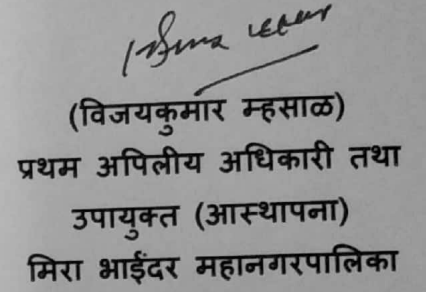 (विजयकुमार म्हसाळ)
प्रथम अपिलीय अधिकारी तथा
उपायुक्त (आस्थापना)
मिरा भाईंदर महानगरपालिका